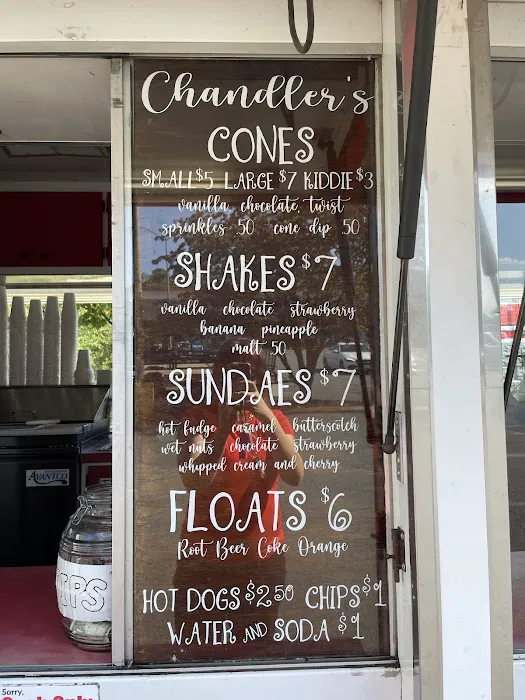 Chandler's
CONES
SMALL $5 LARGE $7 KIDDIE $3
vanilla chocolate, twist
sprinkles .50 cone dip .50
SHAKES $7
vanilla chocolate strawberry
banana pineapple
malt .50
SUNDAES $7
hot fudge caramel butterscotch
wet nuts chocolate strawberry
whipped cream and cherry
FLOATS $6
Root Beer Coke Orange
HOT DOGS $2.50 CHIPS $1
WATER AND SODA $1
AVANTCO
TIPS
Sorry,